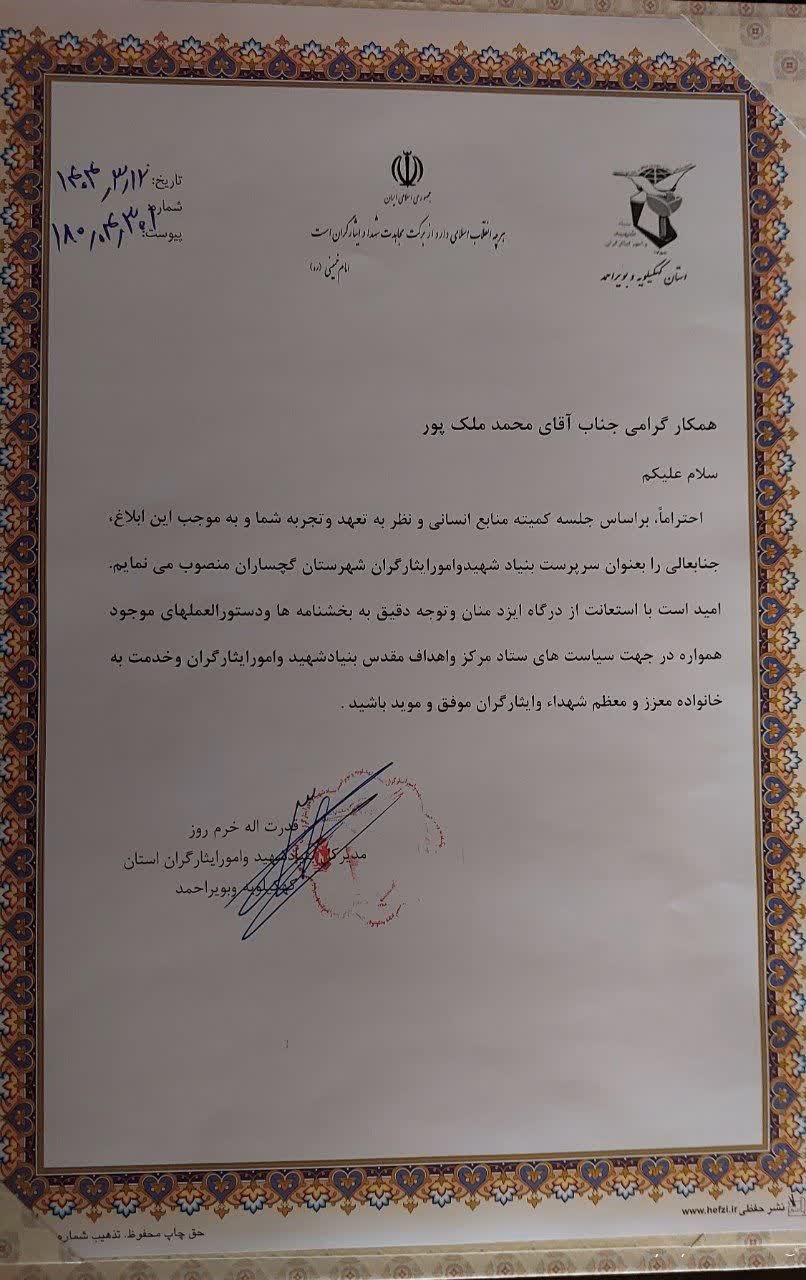 جمهوری اسلامی ایران
هر چه انقلاب اسلامی دارد از برکت مجاهدت شهدا و ایثارگران است
امام خمینی (ره)
بنیاد
شهید
و امور ایثارگران
استان کهگیلویه و بویراحمد
تاریخ: ۱۴۰۴٫۳٫۱۲
شماره:
پیوست:
همکار گرامی جناب آقای محمد ملک پور
سلام علیکم
احتراماً، براساس جلسه کمیته منابع انسانی و نظر به تعهد وتجربه شما و به موجب این ابلاغ،
جنابعالی را بعنوان سرپرست بنیاد شهیدوامورایثارگران شهرستان گچساران منصوب می نمایم.
امید است با استعانت از درگاه ایزد منان وتوجه دقیق به بخشنامه ها ودستورالعملهای موجود
همواره در جهت سیاست های ستاد مرکز واهداف مقدس بنیادشهید وامورایثارگران وخدمت به
خانواده معزز و معظم شهداء وایثارگران موفق و موید باشید .
قدرت اله خرم روز
مدیرکل بنیادشهید وامورایثارگران استان
کهگیلویه وبویراحمد
نشر حفظی www.hefzi.ir
حق چاپ محفوظ. تذهیب شماره